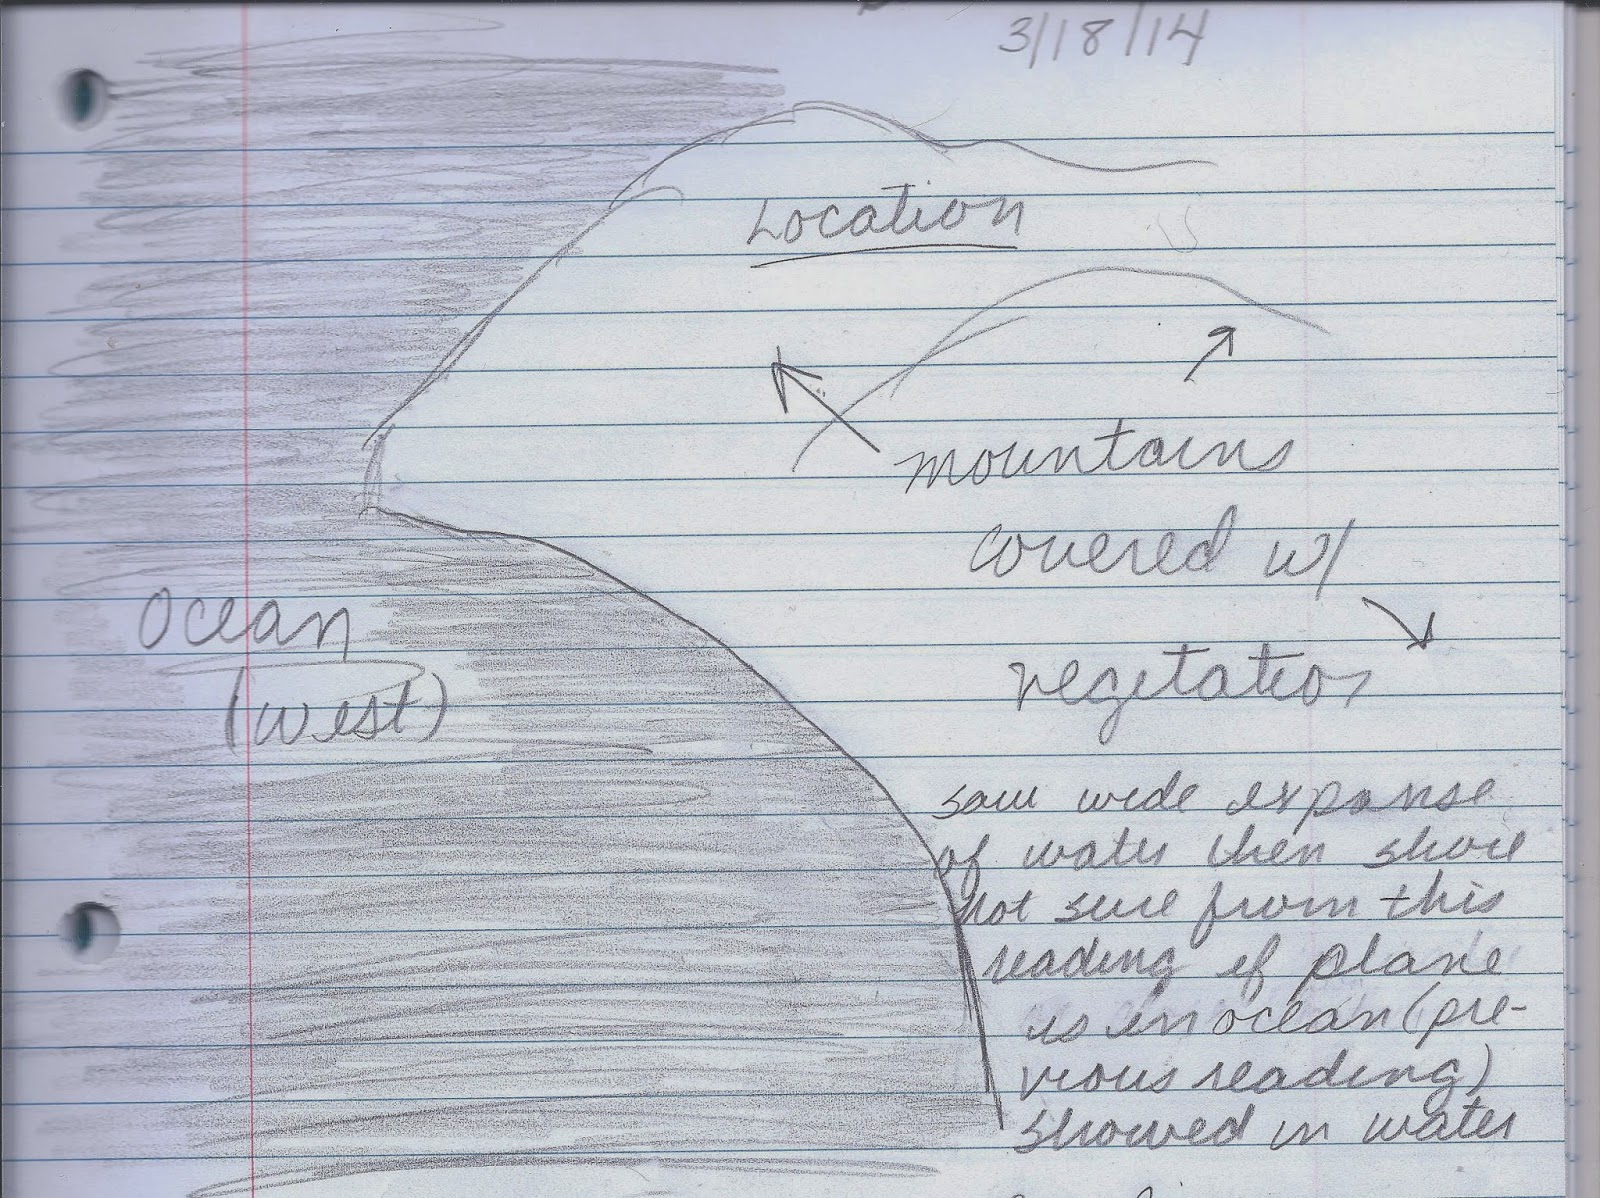 3/18/14
Location
mountains
covered w/
vegetation
Ocean
(west)
saw wide expanse
of water then shore
not sure from this
reading if plane
is in ocean (pre-
vious reading)
showed in water